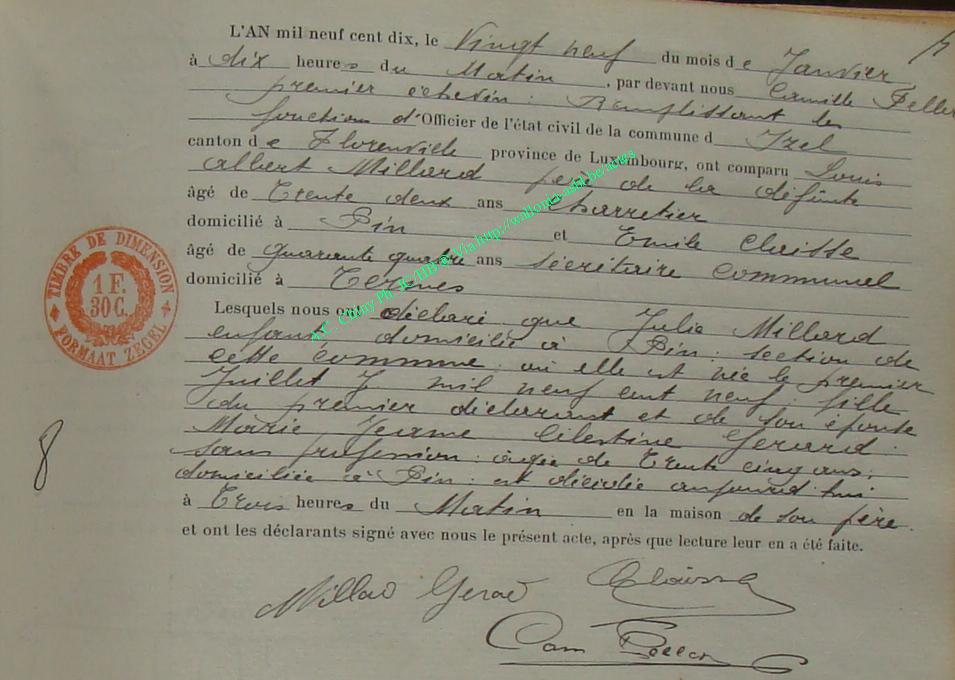 L'AN mil neuf cent dix, le Vingt neuf du mois de Janvier
à dix heures du Matin, par devant nous Camille Feller
premier échevin : Remplissant les
fonctions d'Officier de l'état civil de la commune d Izel
canton de Florenville province de Luxembourg, ont comparu Louis
Albert Millard père de la défunte
âgé de Trente deux ans Charretier
domicilié à Pin et Emile Claisse
âgé de quarante quatre ans Sécrétaire Communel
domicilié à Termes
Lesquels nous ont déclaré que Julia Millard
enfant, domiciliée à Pin : section de
cette commune : où elle est née le premier
Juillet mil neuf cent neuf : fille
du premier déclarant et de son épouse
Marie Jeanne Célestine Gerard :
sans profession : agée de Trente cinq ans :
domiciliée à Pin : est décédée aujourd'hui
à Trois heures du Matin en la maison de son père.
et ont les déclarants signé avec nous le présent acte, après que lecture leur en a été faite.
TIMBRE DE DIMENSION
1 F.
30 C.
FORMAAT ZEGEL
8
Via http://wallonia-asbl.be/actes
Claisse
Cam Feller